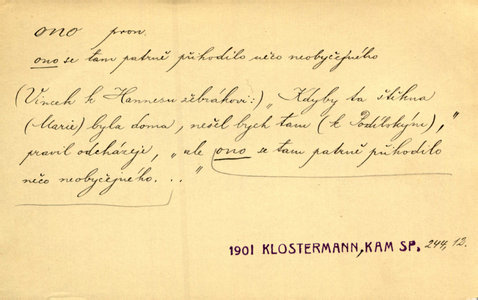 ono pron.
ono se tam patrně přihodilo něco neobyčejného
(Vincek k Hannesu žebrákovi:) „Kdyby ta štěkna
(Marie) byla doma, nešel bych tam (k Podilským),"
pravil odcházeje, „ale ono se tam patrně přihodilo
něco neobyčejného..."
1901 KLOSTERMANN, KAM SP. 244, 12.